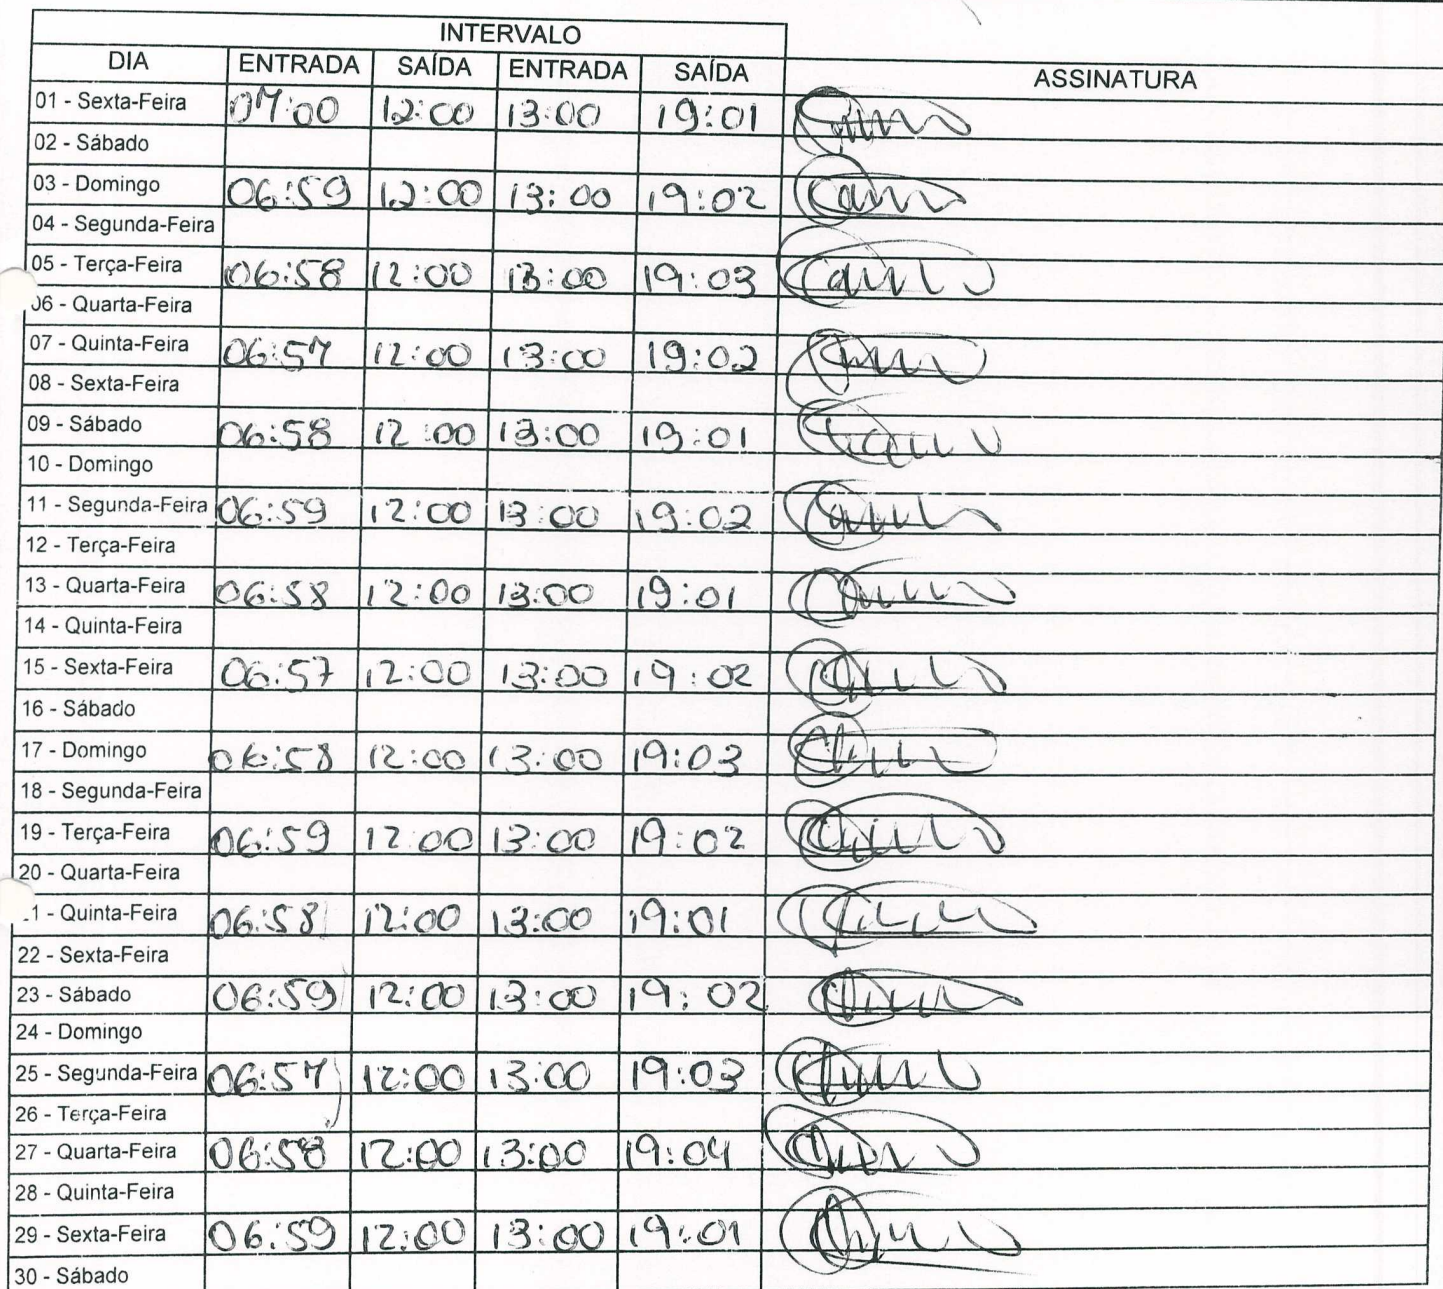 INTERVALO
DIA ENTRADA SAÍDA ENTRADA SAÍDA ASSINATURA
01 - Sexta-Feira 07:00 12:00 13:00 19:01
02 - Sábado
03 - Domingo 06:59 12:00 13:00 19:02
04 - Segunda-Feira
05 - Terça-Feira 06:58 12:00 13:00 19:03
06 - Quarta-Feira
07 - Quinta-Feira 06:57 12:00 13:00 19:02
08 - Sexta-Feira
09 - Sábado 06:58 12:00 13:00 19:01
10 - Domingo
11 - Segunda-Feira 06:59 12:00 13:00 19:02
12 - Terça-Feira
13 - Quarta-Feira 06:58 12:00 13:00 19:01
14 - Quinta-Feira
15 - Sexta-Feira 06:57 12:00 13:00 19:02
16 - Sábado
17 - Domingo 06:58 12:00 13:00 19:03
18 - Segunda-Feira
19 - Terça-Feira 06:59 12:00 13:00 19:02
20 - Quarta-Feira
1 - Quinta-Feira 06:58 12:00 13:00 19:01
22 - Sexta-Feira
23 - Sábado 06:59 12:00 13:00 19:02
24 - Domingo
25 - Segunda-Feira 06:57 12:00 13:00 19:03
26 - Terça-Feira
27 - Quarta-Feira 06:58 12:00 13:00 19:04
28 - Quinta-Feira
29 - Sexta-Feira 06:59 12:00 13:00 19:01
30 - Sábado